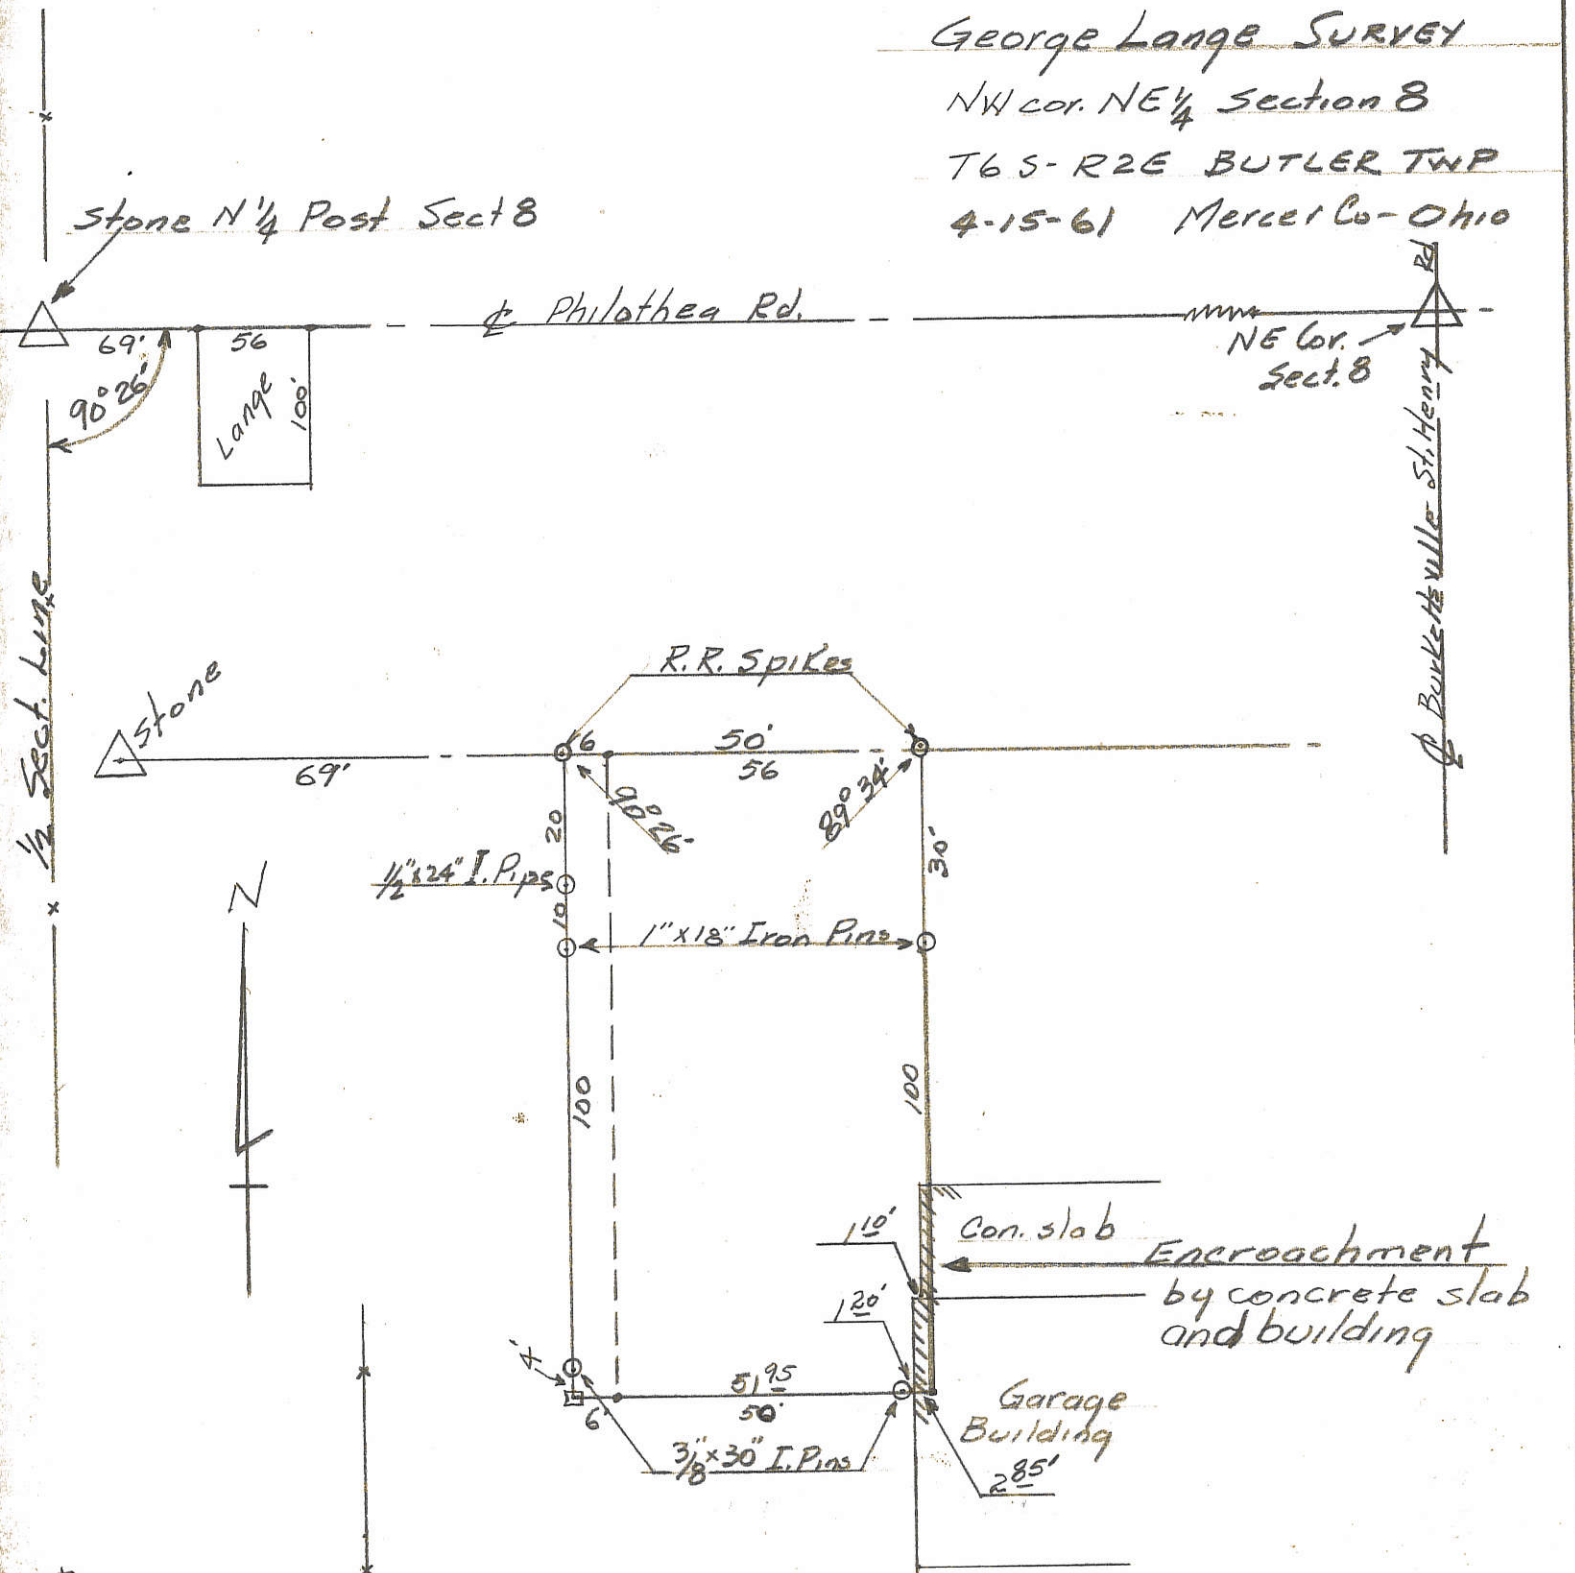 George Lange SURVEY
NW cor. NE 1/4 Section 8
T6 S - R2E BUTLER TWP
4-15-61 Mercer Co - Ohio
Stone N 1/4 Post Sect 8
℄ Philothea Rd.
69'
56
90° 26'
Lange
100'
NE Cor.
Sect. 8
℄ Burkettsville St. Henry Rd
1/2 Sect. Line
Stone
69'
R.R. Spikes
6
50'
56
90° 26'
89° 34'
20
30'
1/2" x 24" I. Pips
10
1" x 18" Iron Pins
N
100
100
1 10'
Con. slab
Encroachment
by concrete slab
and building
1 20'
4'
51 95
6'
50'
Garage
Building
3/8" x 30" I. Pins
2 85'